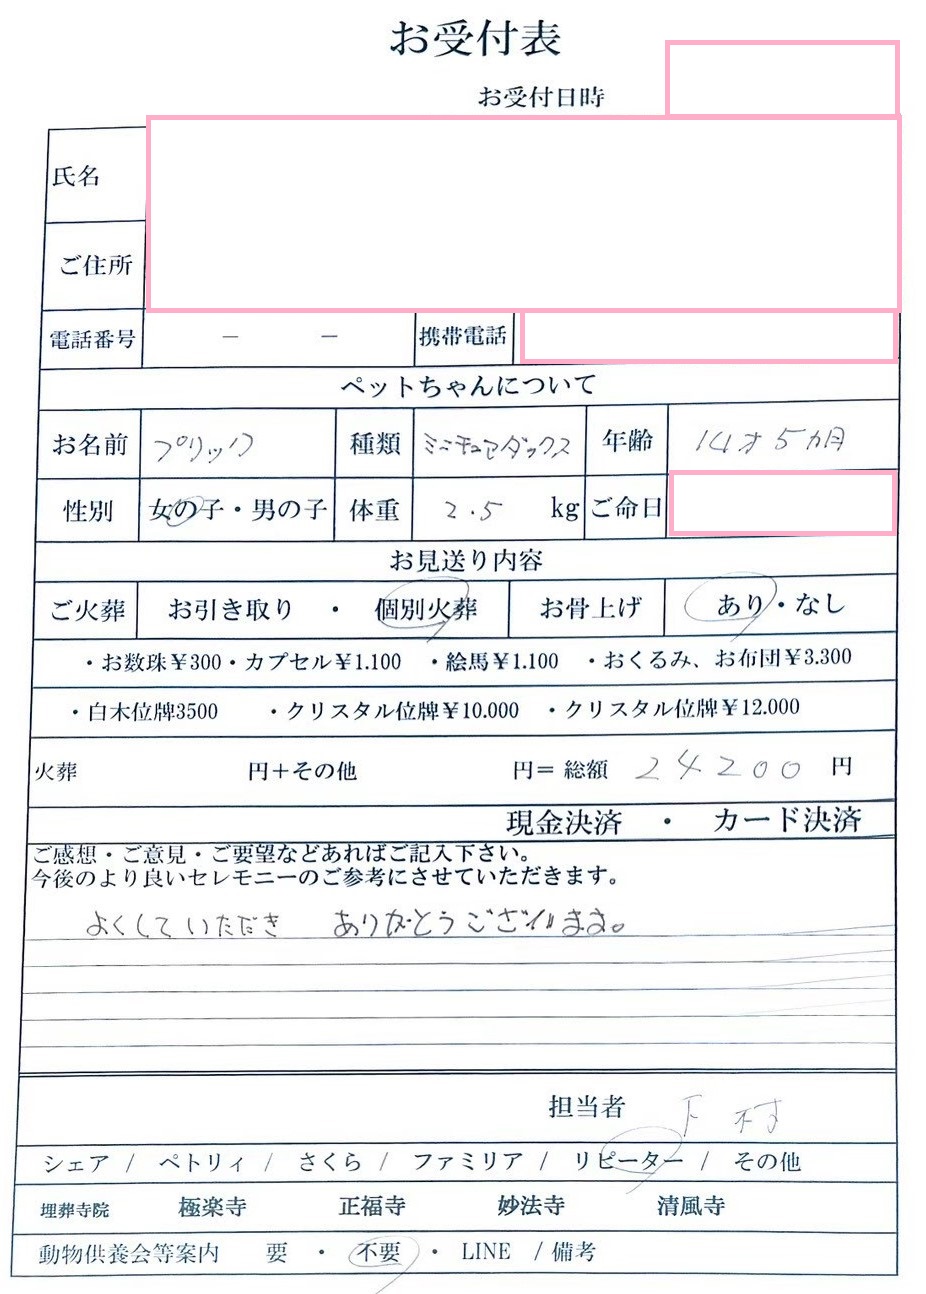 お受付表
お受付日時
氏名
ご住所
電話番号 － － 携帯電話
ペットちゃんについて
お名前 プリック 種類 ミニチュアダックス 年齢 14才5カ月
性別 女の子・男の子 体重 2.5 kg ご命日
お見送り内容
ご火葬 お引き取り ・ 個別火葬 お骨上げ あり・なし
・お数珠￥300・カプセル￥1.100 ・絵馬￥1.100 ・おくるみ、お布団￥3.300
・白木位牌3500 ・クリスタル位牌￥10.000 ・クリスタル位牌￥12.000
火葬 円＋その他 円＝ 総額 24200 円
現金決済 ・ カード決済
ご感想・ご意見・ご要望などあればご記入下さい。
今後のより良いセレモニーのご参考にさせていただきます。
よくしていただき ありがとうございます。
担当者 下村
シェア / ペトリィ / さくら / ファミリア / リピーター / その他
埋葬寺院 極楽寺 正福寺 妙法寺 清風寺
動物供養会等案内 要 ・ 不要 ・ LINE / 備考